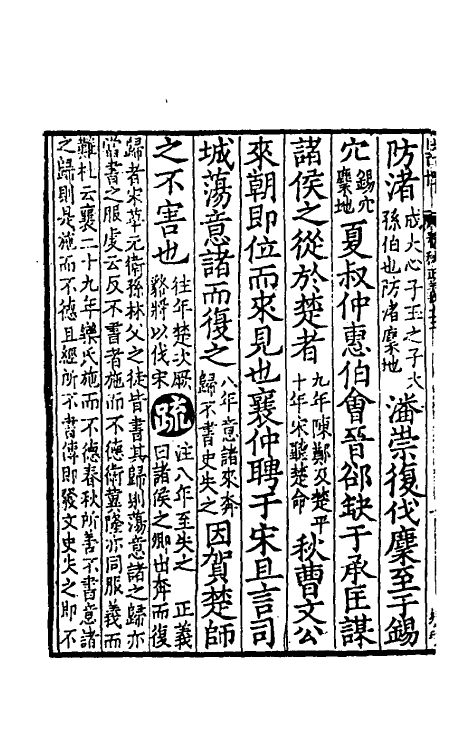 防渚成大心子玉之子大孫伯也防渚麇地潘崇復伐麇至于錫
穴錫穴麇地夏叔仲惠伯會晉郤缺于承匡謀
諸侯之從於楚者九年陳鄭及楚平十年宋聽楚命秋曹文公
來朝即位而來見也襄仲聘于宋且言司
城蕩意諸而復之八年意諸來奔歸不書史失之因賀楚師
之不害也往年楚次厥貉將以伐宋疏注八年至失之 正義曰諸侯之卿出奔而復
歸者宋華元衛孫林父之徒皆書其歸則蕩意諸之歸亦
當書之服虔云反不書者施而不德衛冀隆亦同服義而
難札云襄二十九年欒氏施而不德春秋所善不書意諸
之歸則是施而不德且經所不書傳即發文史失之即不